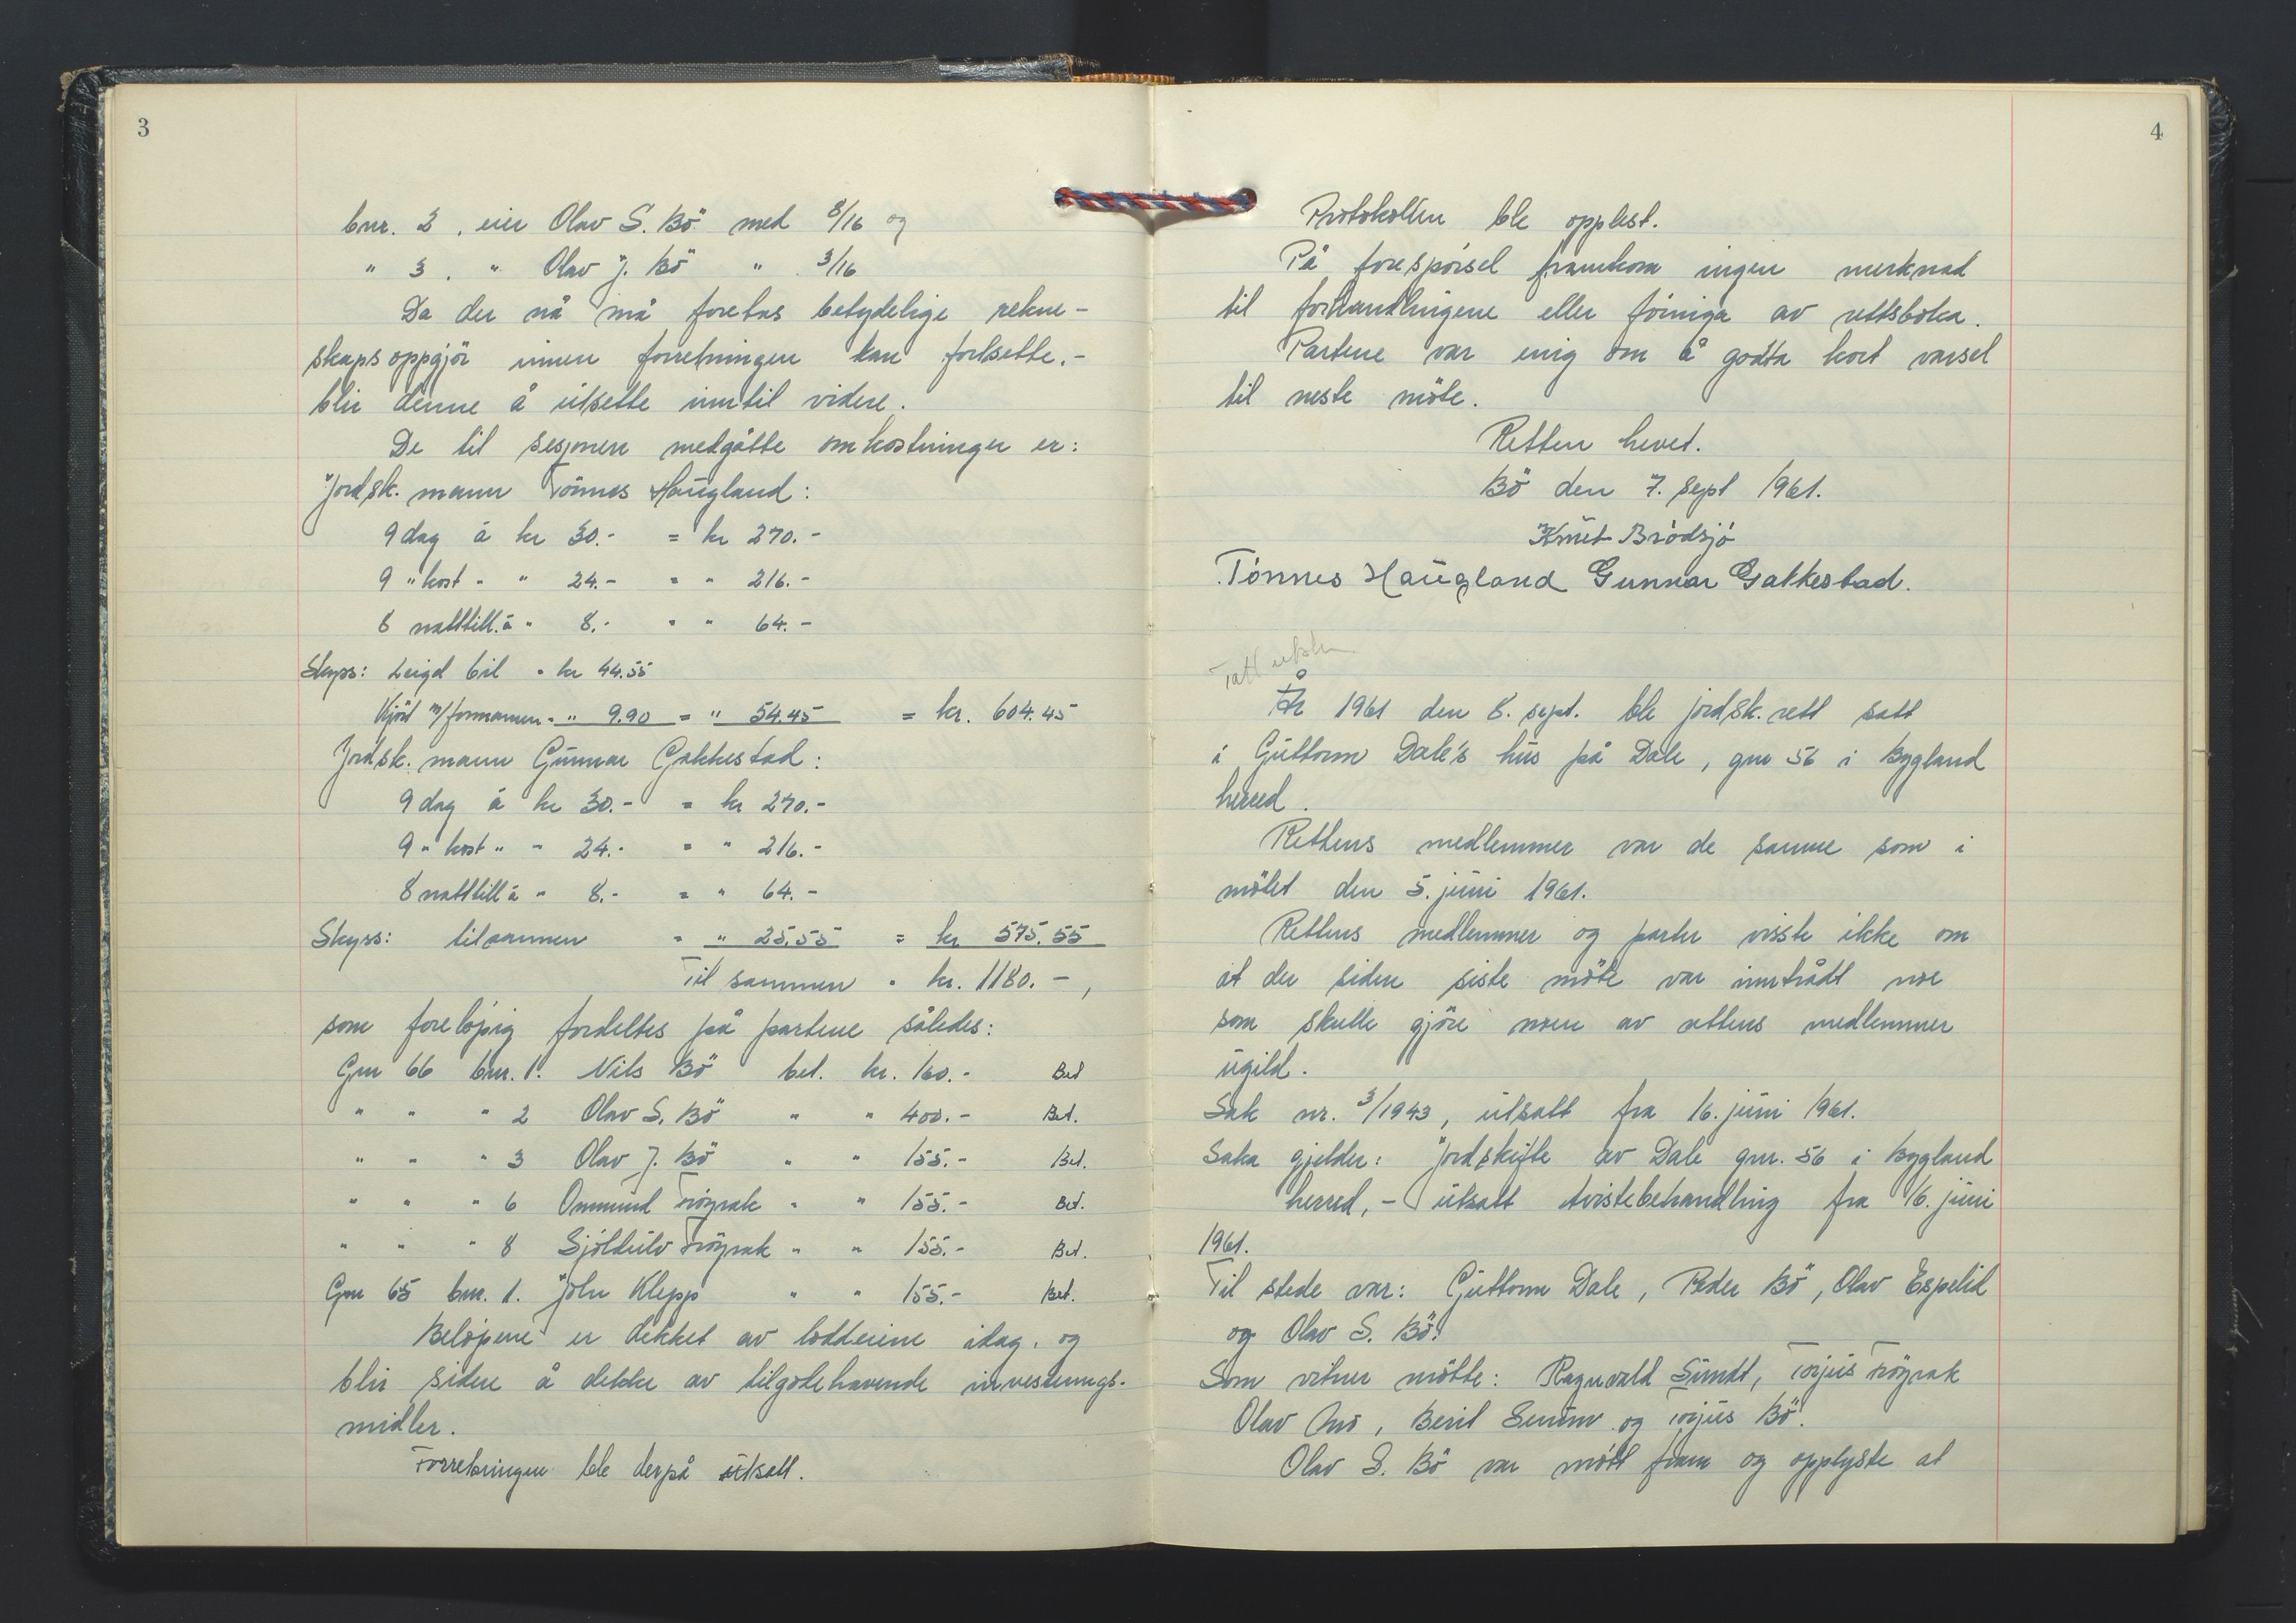 3
bnr. 2, eier Olav S. Bö med 8/16 og
" 3. " Olav J. Bö " 3/16
Da der nå må foretas betydelige rekne-
skapsoppgjör innen forretningen kan fortsette.-
blir denne å utsette inntil videre.
De til sesjonen medgåtte omkostninger er:
Jordsk. mann Tönnes Haugland:
9 dag á kr 30.- = kr 270.-
9 " kost " " 24.- = " 216.-
8 natttill. á " 8.- = " 64.-
Skyss: Leigd bil = kr 44.55
Kjört m/formannen = " 9.90 = " 54.45 = kr. 604.45
Jordsk. mann Gunnar Gakkestad:
9 dag á kr 30.- = kr 270.-
9 " kost " " 24.- = " 216.-
8 natttill á " 8.- = " 64.-
Skyss: tilsammen = " 25.55 = kr 575.55
Til sammen = kr. 1180.-,
som forelöpig fordeltes på partene således:
Gnr 66 bnr. 1. Nils Bö bet. kr. 160.- Bet
" " " 2 Olav S. Bö " " 400.- Bet.
" " " 3 Olav J. Bö " " 155.- Bet.
" " " 6 Ommund Fröyrak " " 155.- Bet.
" " " 8 Sjöltulv Fröyrak " " 155.- Bet.
Gnr 65 bnr. 1. John Klepp " " 155.- Bet.
Belöpene er dekket av lodderne idag, og
blir siden å dekke av tilgodehavende
midler.
Forretningen ble derpå utsatt.
4
Protokollen ble opplest.
På forespörsel framkom ingen merknad
til forhandlingene eller föringa av rettsboka.
Partene var enig om å godta kort varsel
til neste möte.
Retten hevet.
Bö den 7. sept 1961.
Knut Brödsjö
Tönnes Haugland Gunnar Gakkestad.
Tatt utskr.
År 1961 den 8. sept. ble jordsk. rett satt
i Guttorm Dale's hus på Dale, gnr 56 i Bygland
herred.
Rettens medlemmer var de samme som i
mötet den 5. juni 1961.
Rettens medlemmer og parter visste ikke om
at der siden siste möte var inntrådt noe
som skulle gjöre noen av rettens medlemmer
ugild.
Sak nr. 3/1943, utsatt fra 16. juni 1961.
Saka gjelder: Jordskifte av Dale gnr. 56 i Bygland
herred, - utsatt tvistebehandling fra 16. juni
1961.
Til stede var: Guttorm Dale, Peder Bö, Olav Espelid
og Olav S. Bö.
Som vitner mötte: Ragnvald Sundt, Torjus Fröyrak
Olav Mo, Berit og Torjus Bö.
Olav S. Bö var mött fram og opplyste at